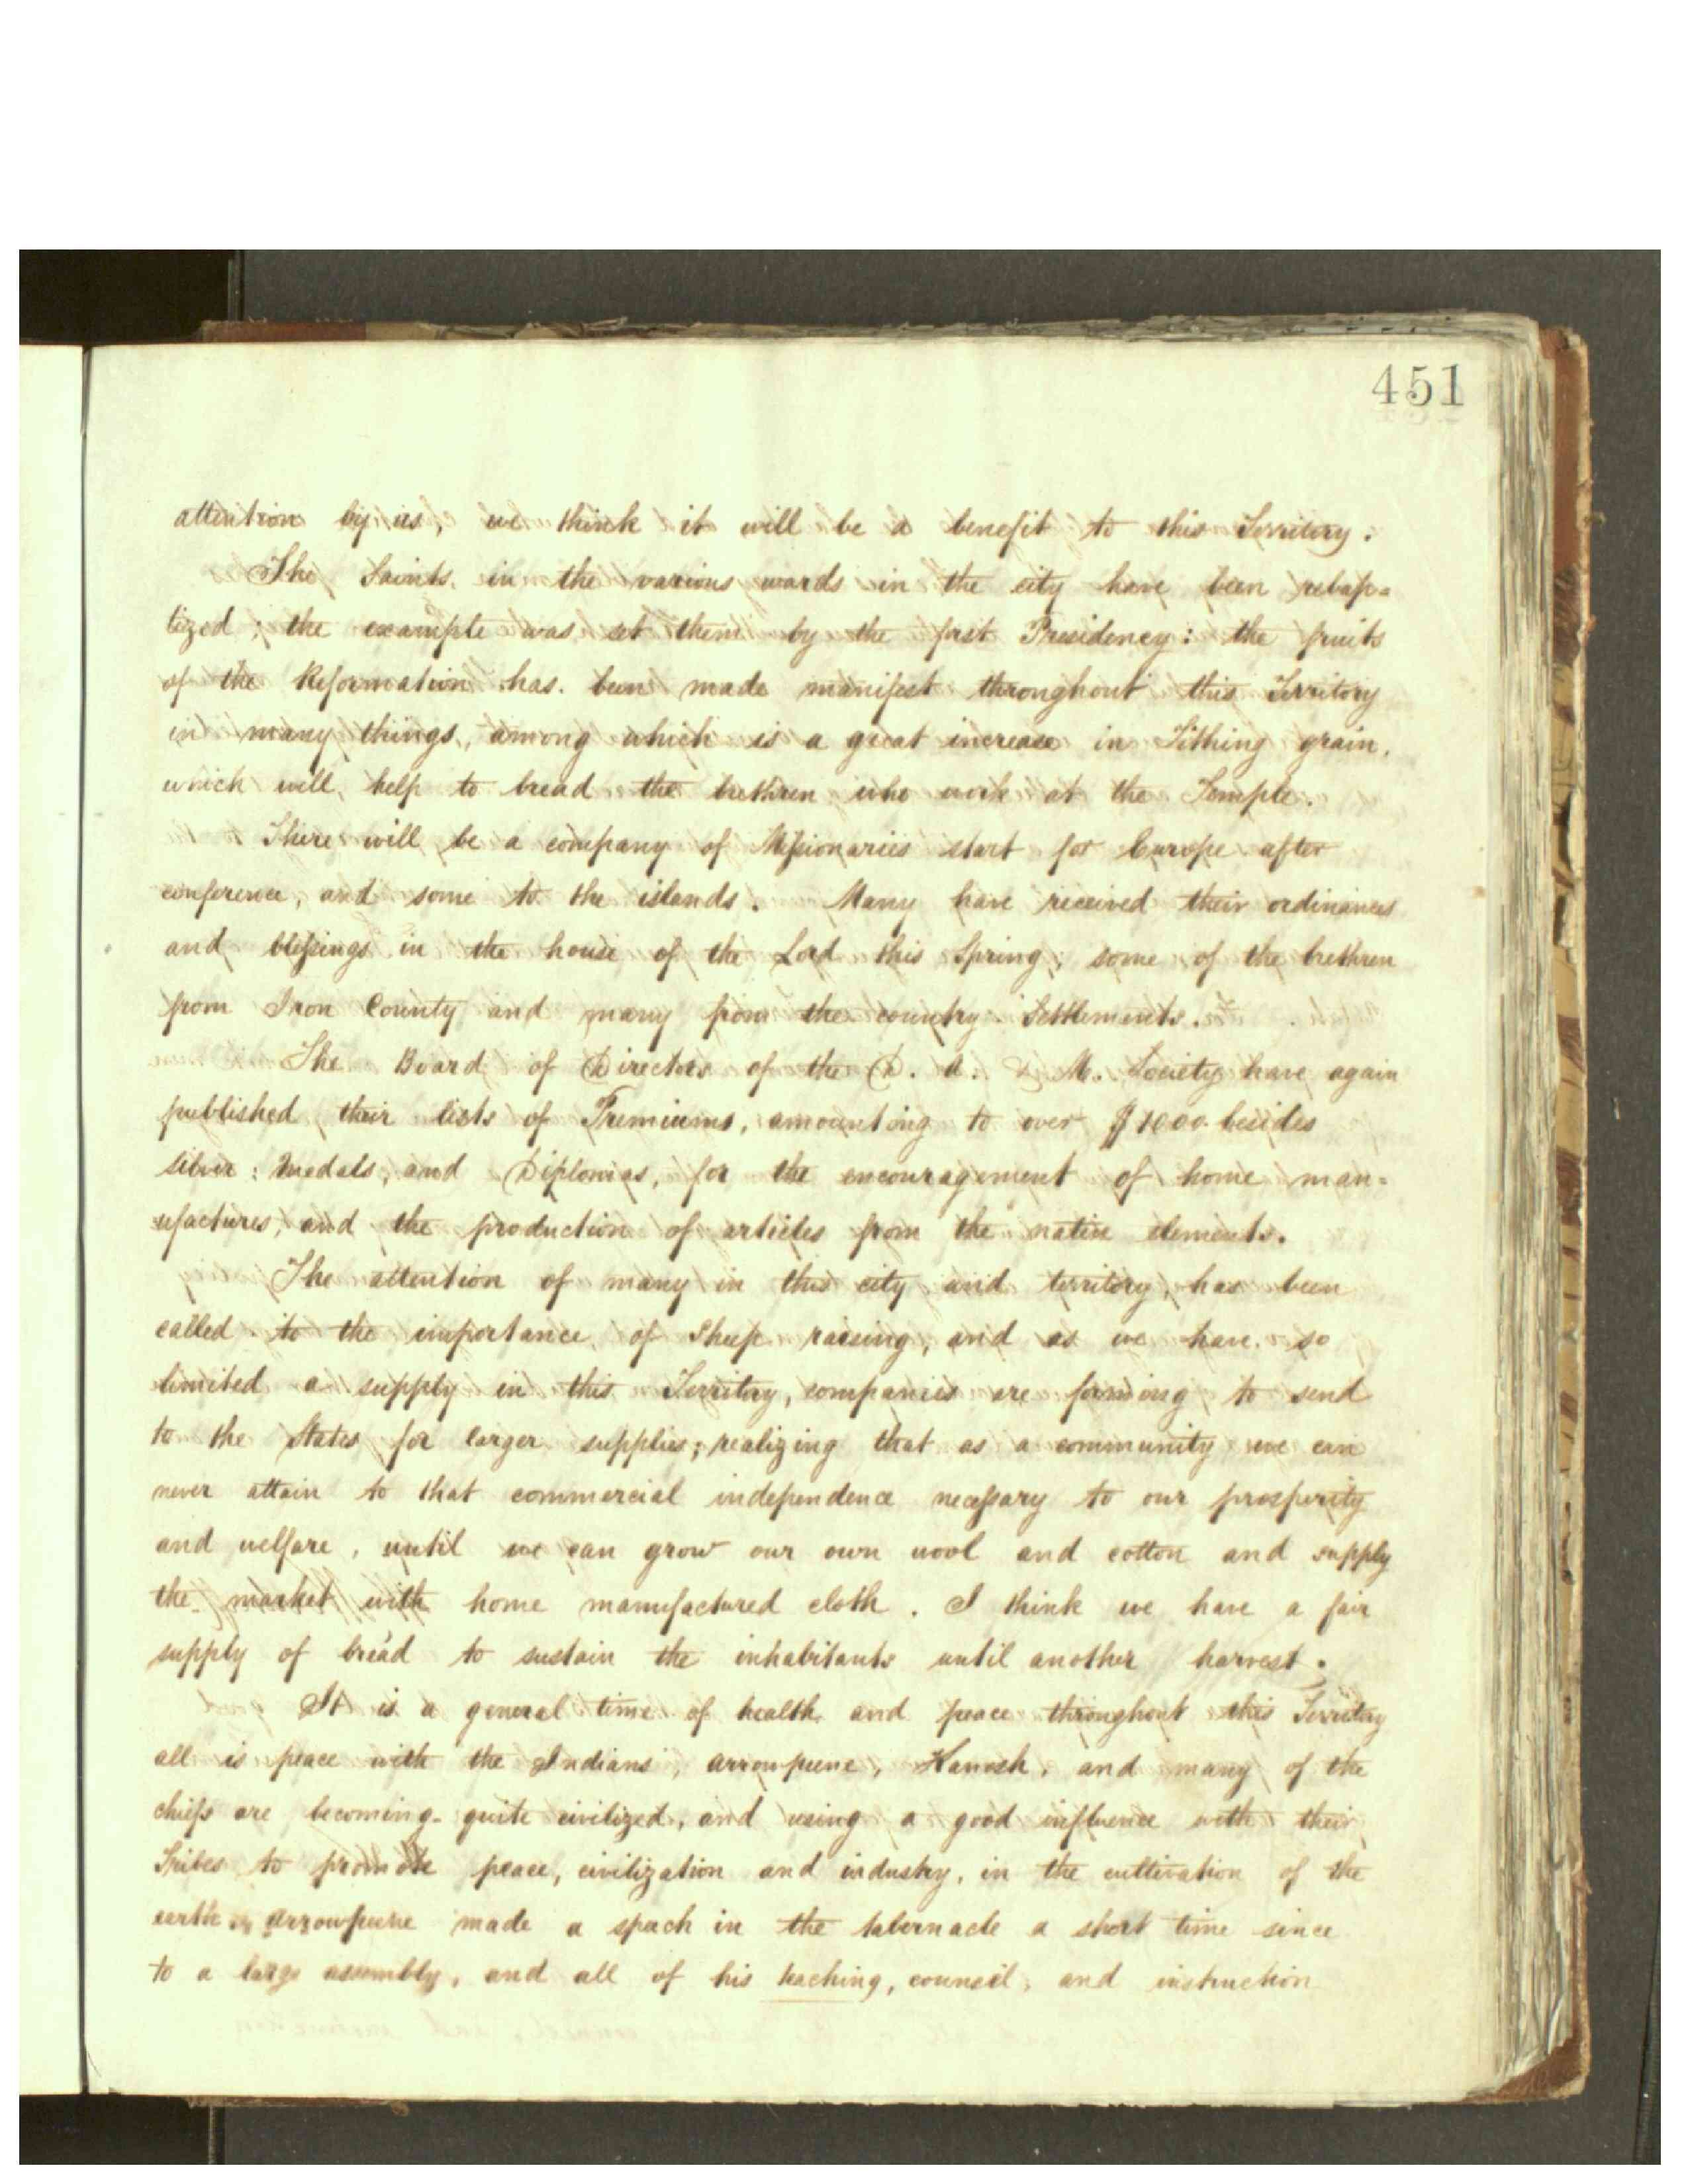 451
attention by us, we think it will be a benefit to this Territory.
The Saints in the various wards in the city have been rebap=
tized; the example was set them by the first Presidency: the fruits
of the Reformation has been made manifest throughout this Territory
in many things, among which is a great increase in Tithing grain,
which will help to bread the brethren who work at the Temple.
There will be a company of Missionaries start for Europe after
conference, and some to the islands. Many have received their ordinances
and blessings in the house of the Lord this Spring; some of the brethren
from Iron County and many from the country Settlements.
The Board of Directors of the D. A. & M. Society have again
published their lists of Premiums, amounting to over $1000 besides
silver Medals, and Diplomas, for the encouragement of home man=
ufactures, and the production of articles from the native elements.
The attention of many in this city and territory, has been
called to the importance of Sheep raising, and as we have so
limited a supply in this Territory, companies are forming to send
to the States for larger supplies; realizing that as a community we can
never attain to that commercial independence necessary to our prosperity
and welfare, until we can grow our own wool and cotton and supply
the market with home manufactured cloth. I think we have a fair
supply of bread to sustain the inhabitants until another harvest.
It is a general time of health and peace throughout this Territory
all is peace with the Indians, arrowpene, Kanosh, and many of the
chiefs are becoming quite civilized, and using a good influence with their
Tribes to promote peace, civilization and industry, in the cultivation of the
earth. arrowpene made a speach in the tabernacle a short time since
to a large assembly, and all of his teaching, council, and instruction